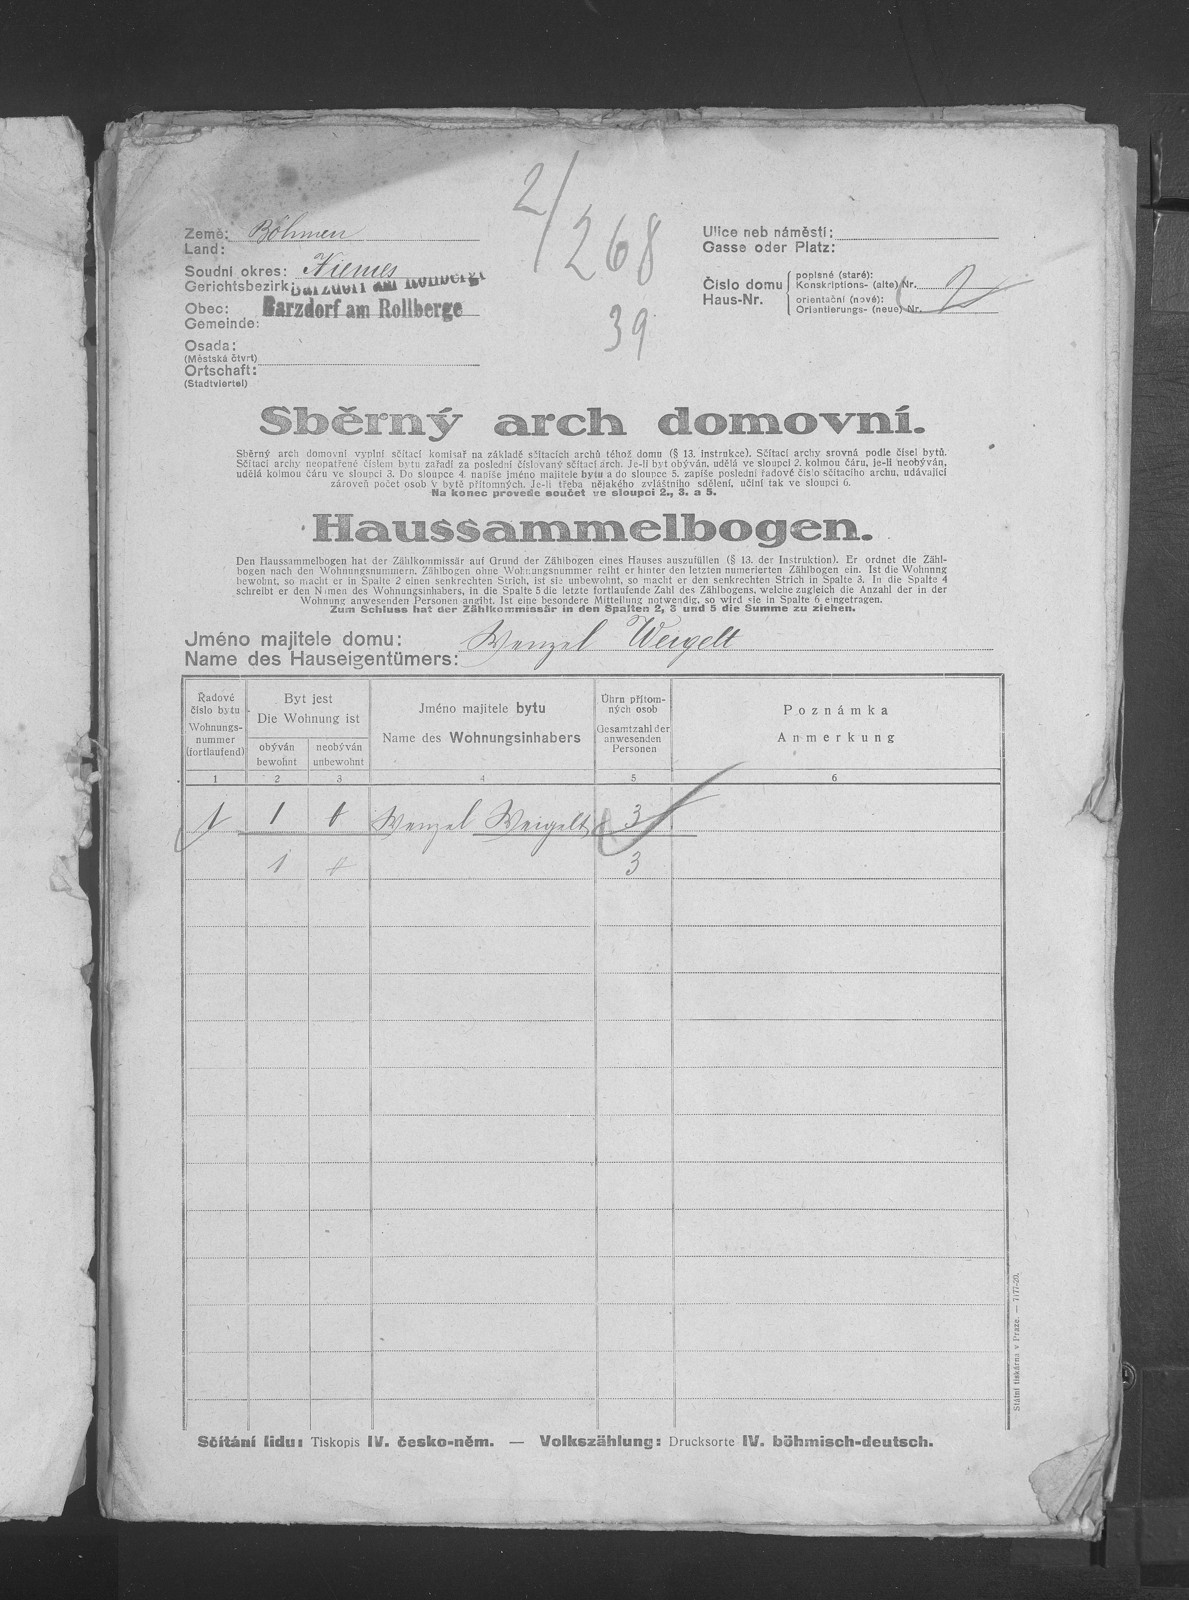 2/268
39
Země: Böhmen
Land:
Soudní okres: Niemes
Gerichtsbezirk: Barzdorf am Rollberge
Obec: Barzdorf am Rollberge
Gemeinde:
Osada:
(Městská čtvrt)
Ortschaft:
(Stadtviertel)
Ulice neb náměstí:
Gasse oder Platz:
Číslo domu
Haus-Nr.
popisné (staré):
Konskriptions- (alte) Nr. 2
orientační (nové):
Orientierungs- (neue) Nr.
Sběrný arch domovní.
Sběrný arch domovní vyplní sčítací komisař na základě sčítacích archů téhož domu (§ 13. instrukce). Sčítací archy srovná podle čísel bytů.
Sčítací archy neopatřené číslem bytu zařadí za poslední číslovaný sčítací arch. Je-li byt obýván, udělá ve sloupci 2. kolmou čáru, je-li neobýván,
udělá kolmou čáru ve sloupci 3. Do sloupce 4. napíše jméno majitele bytu a do sloupce 5. zapíše poslední řadové číslo sčítacího archu, udávající
zároveň počet osob v bytě přítomných. Je-li třeba nějakého zvláštního sdělení, učiní tak ve sloupci 6.
Na konec provede součet ve sloupci 2., 3. a 5.
Haussammelbogen.
Den Haussammelbogen hat der Zählkommissär auf Grund der Zählbogen eines Hauses auszufüllen (§ 13. der Instruktion). Er ordnet die Zähl-
bogen nach den Wohnungsnummern, Zählbogen ohne Wohnungsnummer reiht er hinter den letzten numerierten Zählbogen ein. Ist die Wohnnng
bewohnt, so macht er in Spalte 2 einen senkrechten Strich, ist sie unbewohnt, so macht er den senkrechten Strich in Spalte 3. In die Spalte 4
schreibt er den Namen des Wohnungsinhabers, in die Spalte 5 die letzte fortlaufende Zahl des Zählbogens, welche zugleich die Anzahl der in der
Wohnung anwesenden Personen angibt. Ist eine besondere Mitteilung notwendig, so wird sie in Spalte 6 eingetragen.
Zum Schluss hat der Zählkommissär in den Spalten 2, 3 und 5 die Summe zu ziehen.
Jméno majitele domu: Wenzel Weigelt
Name des Hauseigentümers:
Řadové číslo bytu
Wohnungs-nummer (fortlaufend)
Byt jest
Die Wohnung ist
obýván
bewohnt
neobýván
unbewohnt
Jméno majitele bytu
Name des Wohnungsinhabers
Úhrn přítom-ných osob
Gesamtzahl der anwesenden Personen
Poznámka
Anmerkung
1 2 3 4 5 6
1 1 Wenzel Weigelt 3
1 3
Sčítání lidu: Tiskopis IV. česko-něm. — Volkszählung: Drucksorte IV. böhmisch-deutsch.
Státní tiskárna v Praze. — 7177-20.